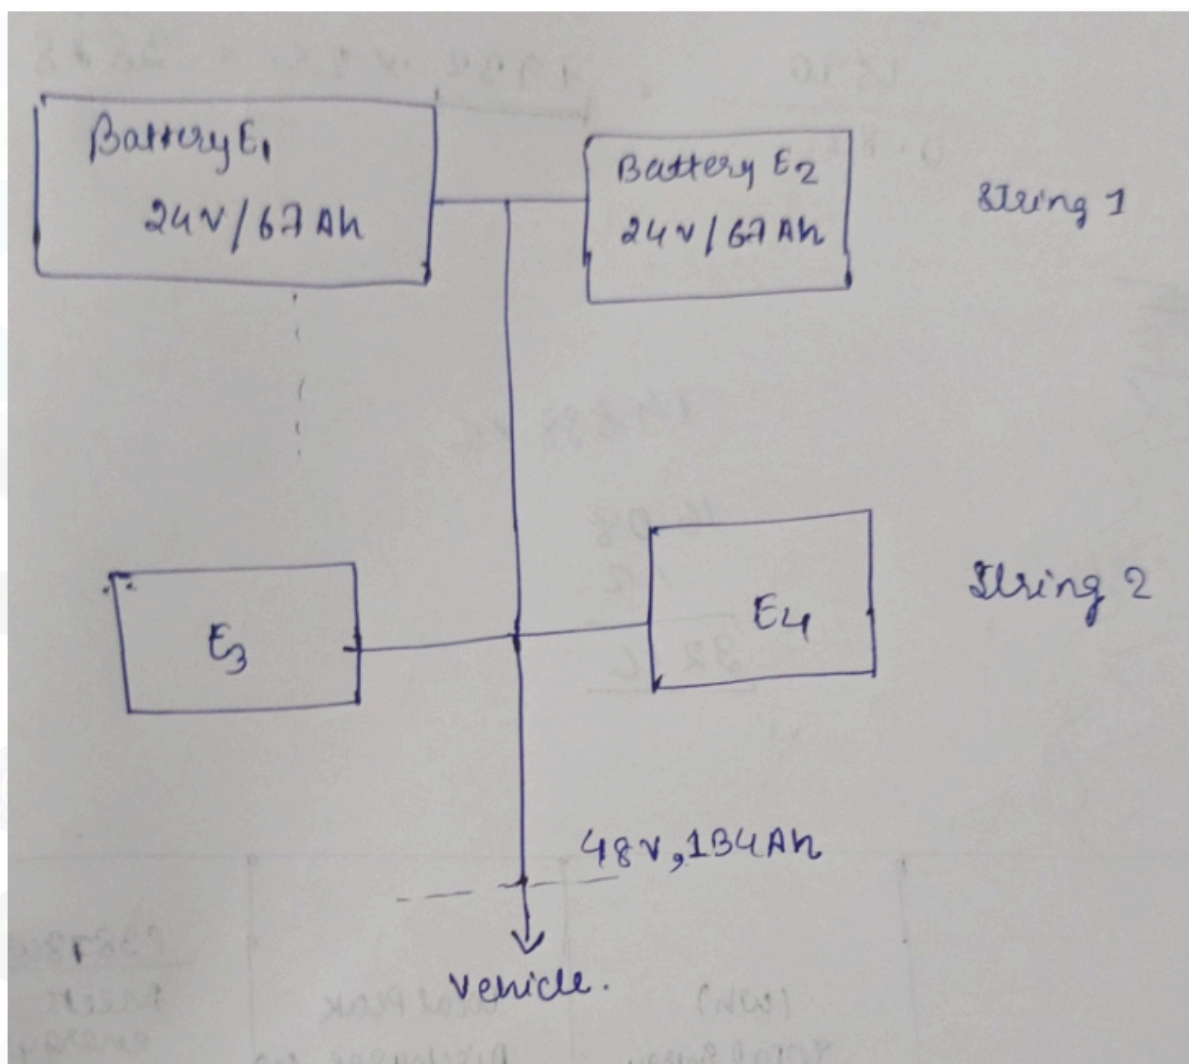 Battery E1
24V/67Ah
Battery E2
24V/67Ah
String 1
E3
E4
String 2
48V,134Ah
Vehicle.